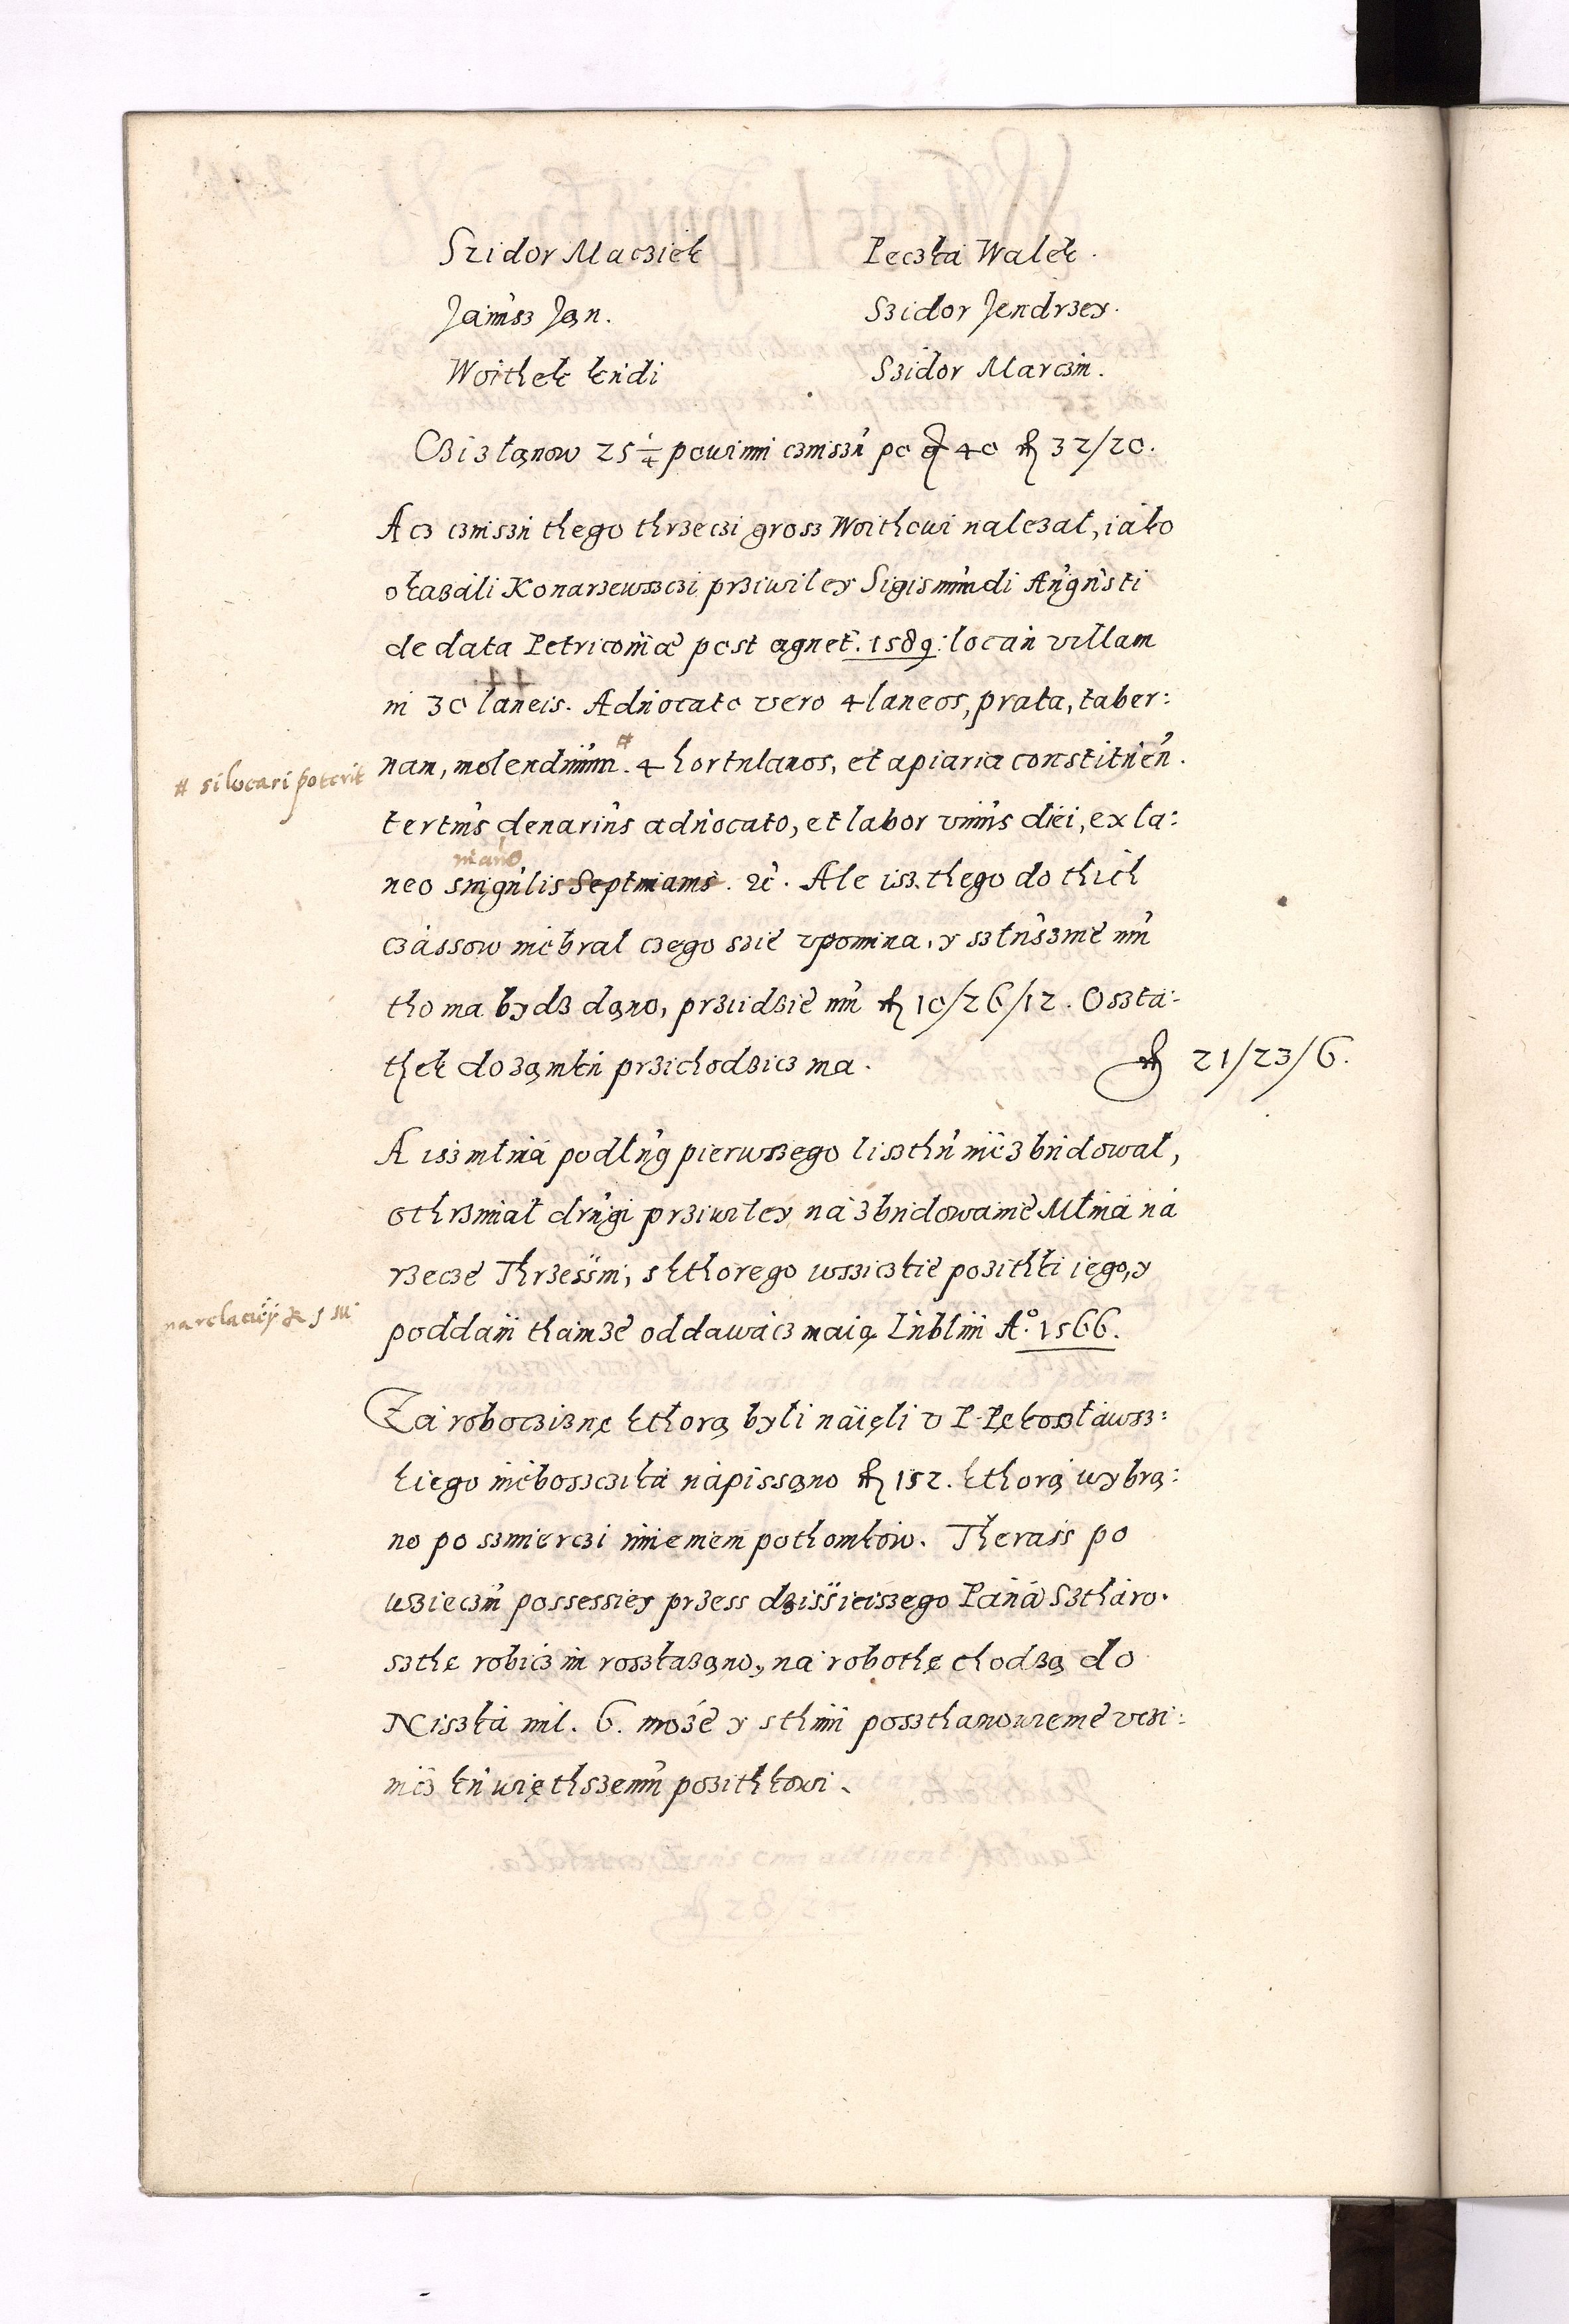 Szidor Macziek
Peczka Walek.
Janusz Jan.
Szidor Jendrzey.
Woithek kudi
Szidor Marczin.
Cziz łąnow 25 1/4 powinni czinszu po g 40 fl 32/20.
A cz czinszu thego thrzeczi grosz Woithowi należał, iako
okazáli Konarzewssczi prziwiley Sigismundi Augusti
de data Petricouiæ post agnet. 1589: locan villam
in 30 laneis. Aduocato vero 4 laneos, prata, taber:
nam, molendinum # 4 hortulanos, et apiaria constituen.
# si locari poterit
tertius denarius aduocato, et labor vnius diei, ex la:
anno
neo singulis Septimanis. &c. Ale isz thego do thich
czássow niebrał czego szie vpomina, y szłusznie mu
tho ma bydz dąno, prziidzie mu fl 10/26/12. Oszta:
thek do ząmku przichodzicz ma. fl 21/23/6.
A isz młina podług pierwszego liszthu niezbudował,
othrzimał drugi prziwiley ná zbudowanie Młina ná
rzecze Thrzessni, s kthorego wsziczkie pozithki iego, y
poddani thamże oddawácz maią Lublini Aº. 1566.
Zá roboczizne kthorą byli náięli v P. Pękosławsz:
kiego nieboszczika nápissąno fl 152. kthorą wybrą:
no po szmierczi imieniem pothomkow. Therass po
wzieczu possessiey przess dzissieiszego Páná Sztháro.
szthę robicz im rosskaząno, ná robothę chodzą do
Niszká mil. 6. może y sthimi poszthanowienie vczi:
nicz ku więthszemu pozithkowi.